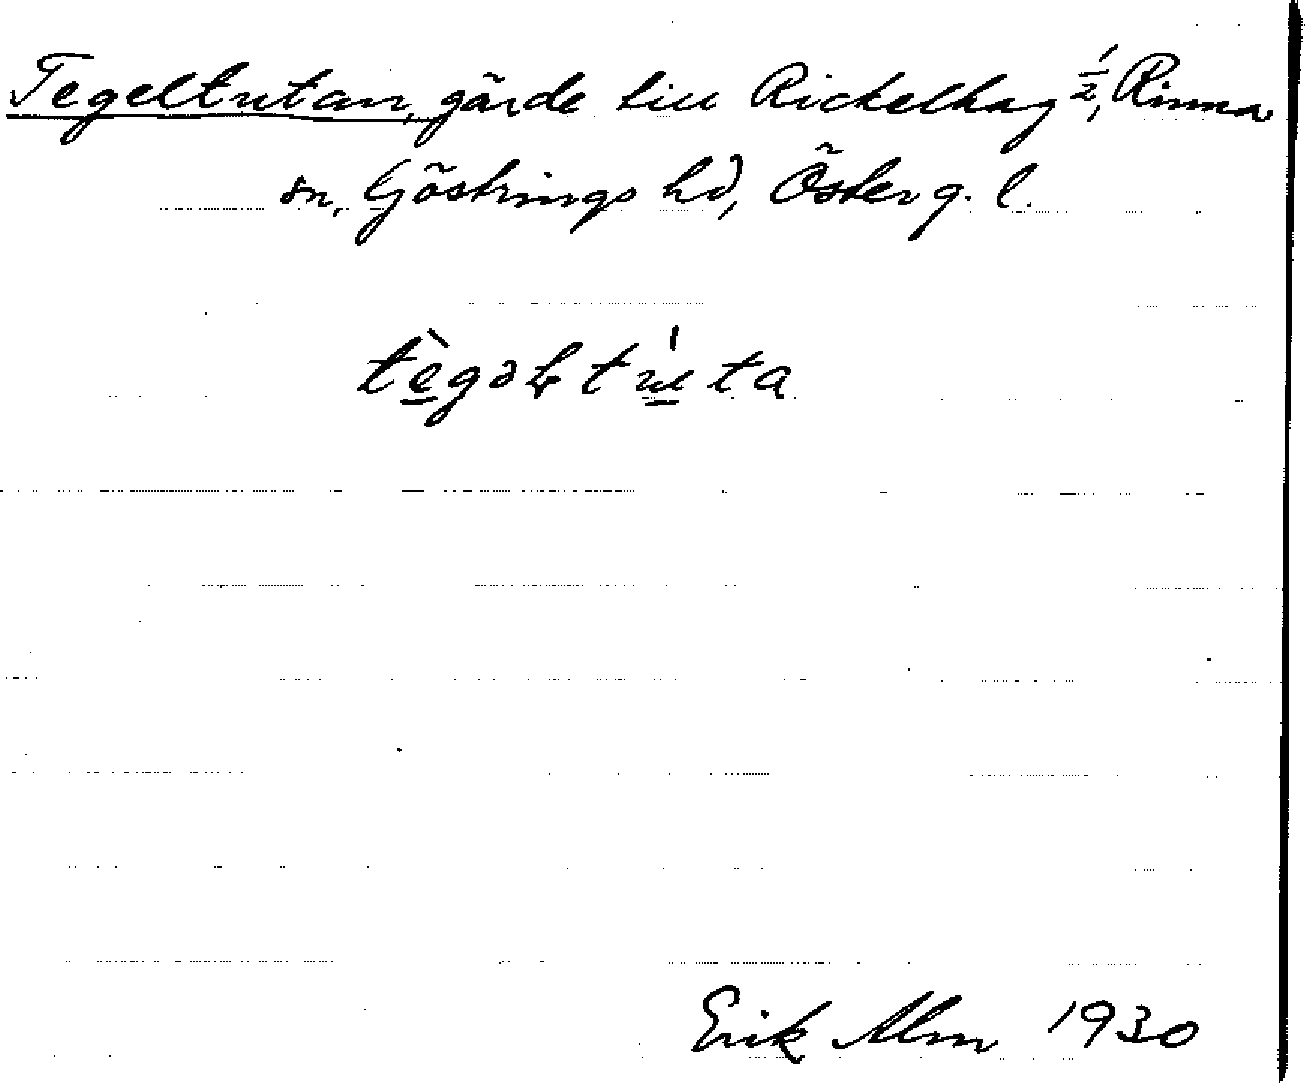 Tegeltutan, gärde till Rickelhag ½, Rinna
sn, Göstrings hd, Österg. l.
tègəLtu̍ta
Erik Alm 1930